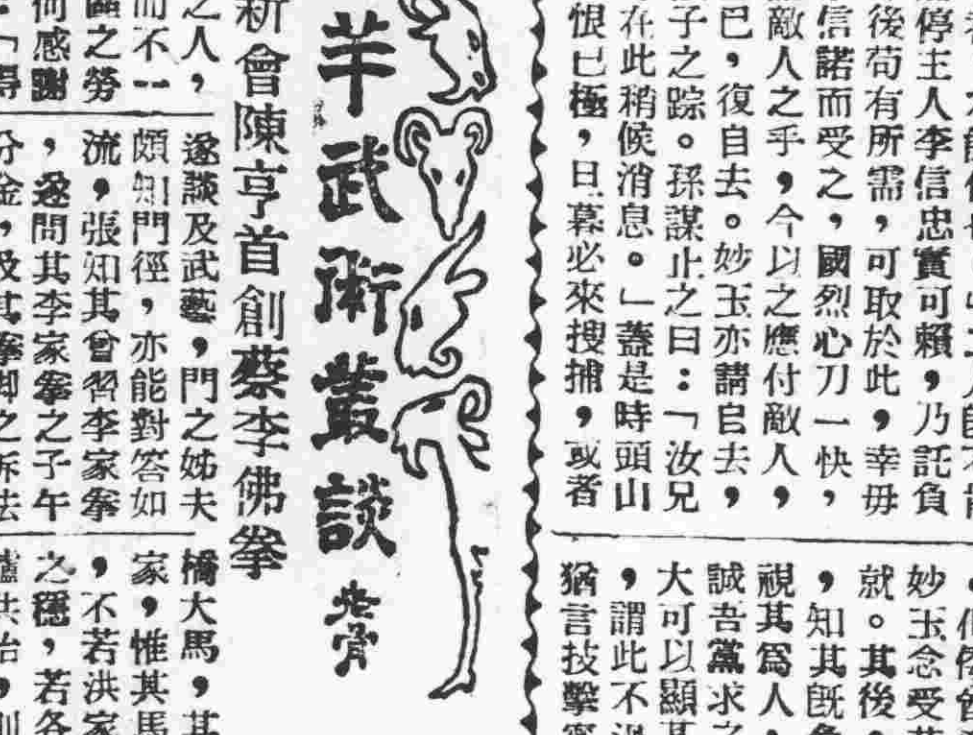 停主人李信忠實可賴，乃託負
後苟有所需，可取於此，幸毋
信諾而受之，國烈心刀一快，
敵人之乎，今以之應付敵人，
已，復自去。妙玉亦請自去，
子之踪。孫謀止之曰：「汝兄
在此稍候消息。」蓋是時頭山
恨已極，日暮必來搜捕，或者
妙玉念受
就。其後
，知其既
視其爲人
誠吾黨求之
大可以顯其
，謂此不
猶言技擊
羊武術叢談
老骨
新會陳亨首創蔡李佛拳
之人，
而不一
之勞
何感謝
「得
遂談及武藝，門之姊夫
頗知門徑，亦能對答如
流，張知其曾習李家拳
，遂問其李家拳之子午
分金，及其拳脚之訴法
橋大馬，其
家，惟其馬
，不若洪家
之穩，若各